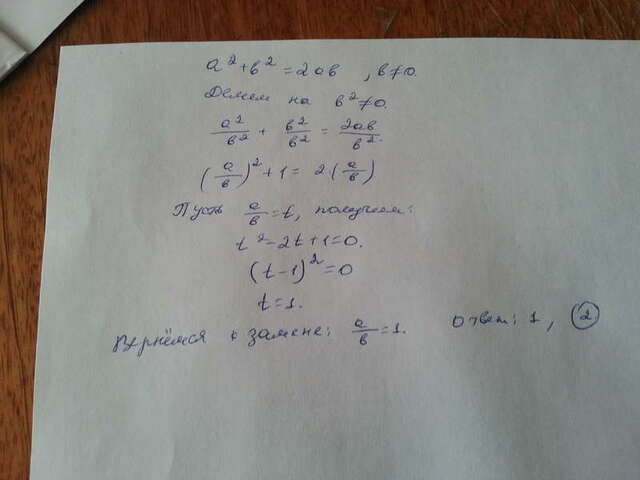 a² + b² = 2ab , b ≠ 0.
Делим на b² ≠ 0.
a²/b² + b²/b² = 2ab/b².
(a/b)² + 1 = 2(a/b)
Пусть a/b = t, получим:
t² - 2t + 1 = 0.
(t - 1)² = 0
t = 1.
Вернёмся к замене: a/b = 1. Ответ: 1, 2